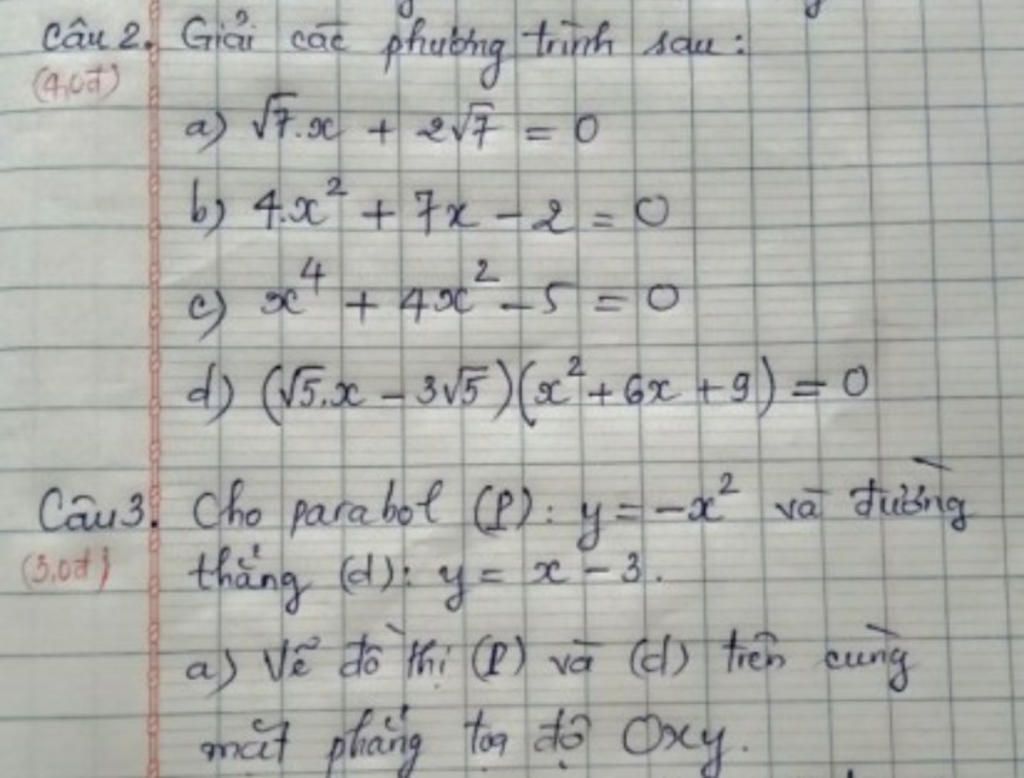 Câu 2. Giải các phương trình sau:
(4,0đ)
a) √7.x + 2√7 = 0
b) 4.x² + 7x - 2 = 0
c) x⁴ + 4x² - 5 = 0
d) (√5.x - 3√5)(x² + 6x + 9) = 0
Câu 3. Cho parabol (P): y = -x² và đường
(3,0đ) thẳng (d): y = x - 3.
a) Vẽ đồ thị (P) và (d) trên cùng
mặt phẳng tọa độ Oxy.